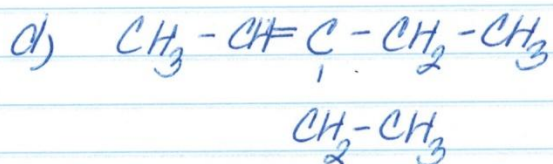 d) CH₃-CH=C-CH₂-CH₃
CH₂-CH₃